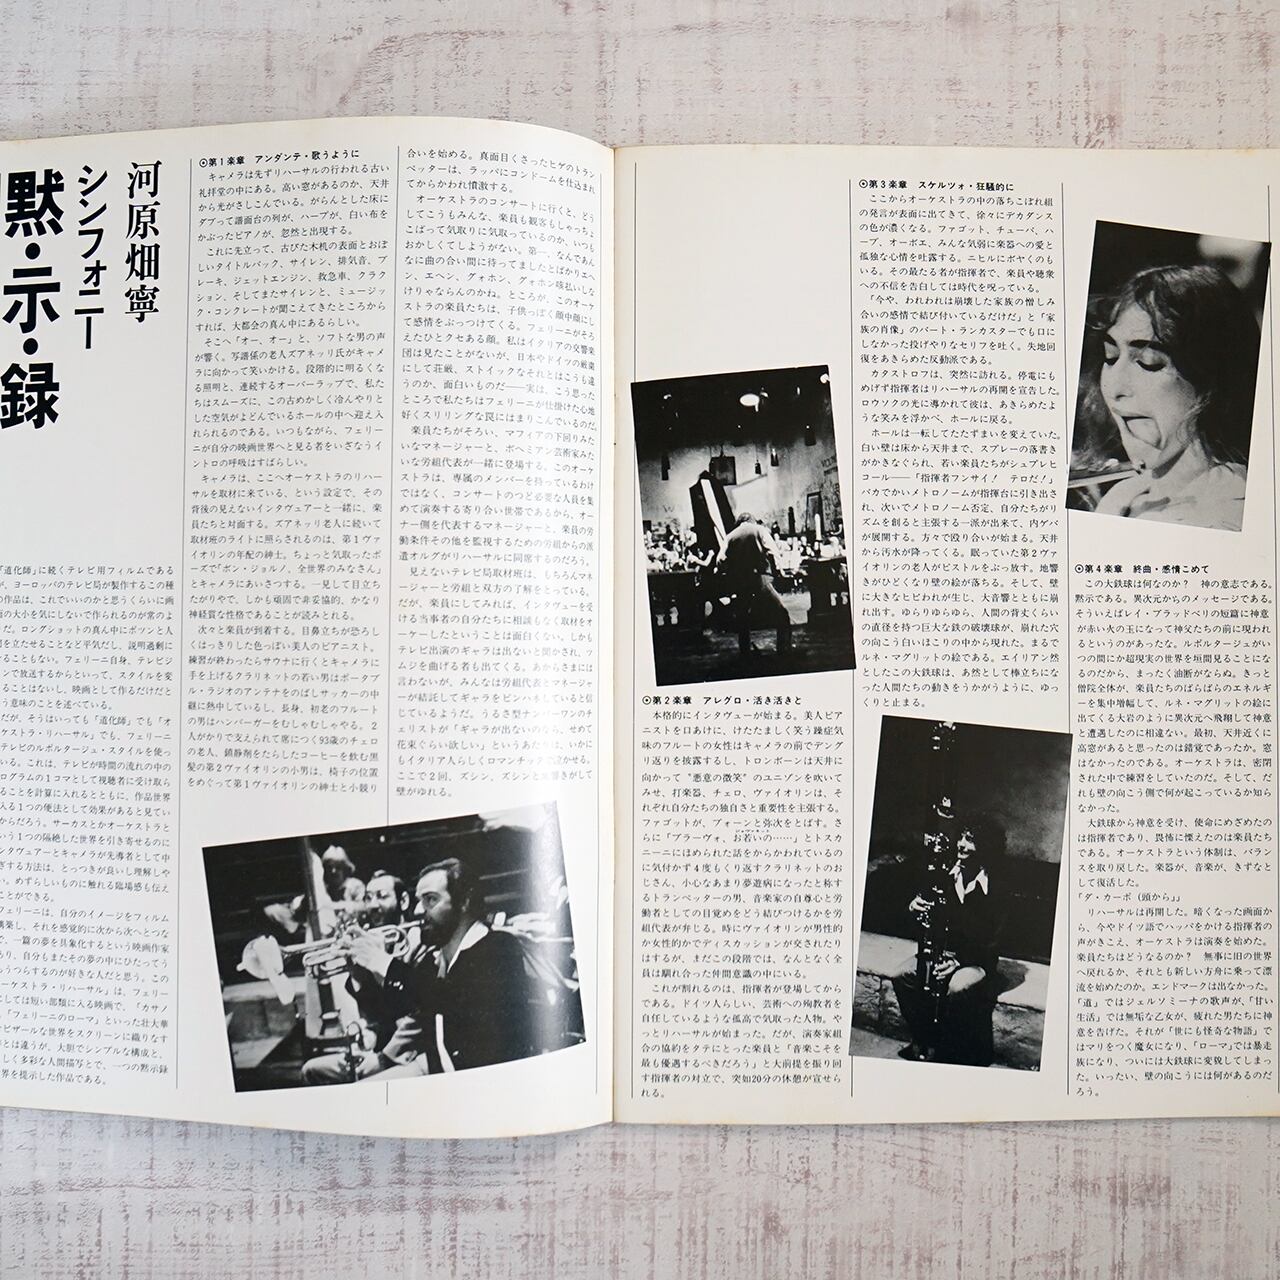 河原畑寧
シンフォニー
黙・示・録
「道化師」に続くテレビ用フィルムである
が、ヨーロッパのテレビ局が製作するこの種
の作品は、これでいいのかと思うくらいに画
面の大小を気にしないで作られるのが常のよ
うだ。ロングショットの真ん中にポツンと人
間を立たせることなど平気だし、説明過剰に
なることもない。フェリーニ自身、テレビジ
ョンで放送するからといって、スタイルを変
えることはないし、映画として作るだけだと
いう意味のことを述べている。
だが、そうはいっても「道化師」でも「オ
ーケストラ・リハーサル」でも、フェリーニ
はテレビのルポルタージュ・スタイルを使っ
ている。これは、テレビが時間の流れの中の
プログラムの1コマとして視聴者に受け取ら
れることを計算に入れるとともに、作品世界
に入る1つの便法として効果があると見てい
るからだろう。サーカスとかオーケストラと
いう1つの隔絶した世界を引き寄せるのに
インタヴュアーとカメラが先導者として中
継ぎする方法は、とっつきが良いし理解しや
すい。めずらしいものに触れる臨場感も伝え
ることができる。
フェリーニは、自分のイメージをフィルム
に構築し、それを感覚的に次から次へとつな
いで、一篇の夢を具象化するという映画作家
であり、自分もまたその夢の中にひたってう
つらうつらするのが好きな人だと思う。この
「オーケストラ・リハーサル」は、フェリー
ニにしては短い部類に入る映画で、「カサノ
バ」「フェリーニのローマ」といった壮大華
麗でビザールな世界をスクリーンに織りなす
のとは違うが、大胆でシンプルな構成と、
しく多彩な人間描写とで、一つの黙示録
世界を提示した作品である。
⊙第1楽章　アンダンテ・歌うように
カメラは先ずリハーサルの行われる古い
礼拝堂の中にある。高い窓があるのか、天井
から光がさしこんでいる。がらんとした床に
ダブって譜面台の列が、ハープが、白い布を
かぶったピアノが、忽然と出現する。
これに先立って、古びた木机の表面とおぼ
しいタイトルバック、サイレン、排気音、ブ
レーキ、ジェットエンジン、救急車、クラク
ション、そしてまたサイレンと、ミュージッ
ク・コンクレートが聞こえてきたところから
すれば、大都会の真ん中にあるらしい。
そこへ「オー、オー」と、ソフトな男の声
が響く。写譜係の老人ズアネッリ氏がキャメ
ラに向かって笑いかける。段階的に明るくな
る照明と、連続するオーバーラップで、私た
ちはスムーズに、この古めかしく冷んやりと
した空気がよどんでいるホールの中へ迎え入
れられるのである。いつもながら、フェリー
ニが自分の映画世界へと見る者をいざなうイ
ントロの呼吸はすばらしい。
キャメラは、ここへオーケストラのリハー
サルを取材に来ている、という設定で、その
背後の見えないインタヴュアーと一緒に、楽
員たちと対面する。ズアネッリ老人に続いて
取材班のライトに照らされるのは、第1ヴァ
イオリンの年配の紳士。ちょっと気取ったポ
ーズで「ボン・ジョルノ、全世界のみなさん」
とキャメラにあいさつする。一見して目立ち
たがりやで、しかも頑固で非妥協的、かなり
神経質な性格であることが読みとれる。
次々と楽員が到着する。目鼻立ちが恐ろし
くはっきりした色っぽい美人のピアニスト。
練習が終わったらサウナに行くとキャメラに
手を上げるクラリネットの若い男はポータブ
ル・ラジオのアンテナをのばしサッカーの中
継に熱中しているし、長身、初老のフルート
の男はハンバーガーをむしゃむしゃやる。2
人がかりで支えられて席につく93歳のチェロ
の老人、鎮静剤をたらしたコーヒーを飲む黒
髪の第2ヴァイオリンの小男は、椅子の位置
をめぐって第1ヴァイオリンの紳士と小競り
合いを始める。真面目くさったヒゲのトラン
ペッターは、ラッパにコンドームを仕込まれ
てからかわれ憤激する。
オーケストラのコンサートに行くと、どう
してこうもみんな、楽員も観客もしゃっちょ
こばって気取りに気取っているのか、いつも
おかしくてしようがない。第一、なんであん
なに曲の合い間に待ってましたとばかりエヘ
ン、エヘン、グォホン、グォホン咳払いしな
けりゃならんのかね。ところが、このオーケ
ストラの楽員たちは、子供っぽく顔中顔にし
て感情をぶっつけてくる。フェリーニがそろ
えたひとクセある顔。私はイタリアの交響楽
団は見たことがないが、日本やドイツの厳粛
にして荘厳、ストイックなそれとはこうも違
うのか、面白いものだ——実は、こう思った
ところで私たちはフェリーニが仕掛けた心地
好くスリリングな罠にはまりこんでいるのだ。
楽員たちがそろい、マフィアの下回りみた
いなマネージャーと、ボヘミアン芸術家みた
いな労組代表が一緒に登場する。このオーケ
ストラは、専属のメンバーを持っているわけ
ではなく、コンサートのつど必要な人員を集
めて演奏する寄り合い世帯であるから、オー
ナー側を代表するマネージャーと、楽員の労
働条件その他を監視するための労組からの派
遣オルグがリハーサルに同席するのだろう。
見えないテレビ局取材班は、もちろんマネ
ージャーと労組と双方の了解をとっている。
だが、楽員にしてみれば、インタヴューを受
ける当事者の自分たちに相談もなく取材をオ
ーケーしたということは面白くない。しかも
テレビ出演のギャラは出ないと聞かされ、ツ
ムジを曲げる者も出てくる。あからさまには
言わないが、みんなは労組代表とマネージャ
ーが結託してギャラをピンハネしていると信
じているようだ。うるさ型ナンバーワンのチ
ェリストが「ギャラが出ないのなら、せめて
花束ぐらい欲しい」というあたりは、いかに
もイタリア人らしくロマンチックで泣かせる。
ここで2回、ズシン、ズシンと地響きがして
壁がゆれる。
⊙第2楽章　アレグロ・活き活きと
本格的にインタヴューが始まる。美人ピア
ニストを口あけに、けたたましく笑う躁症気
味のフルートの女性はキャメラの前でデング
リ返りを披露するし、トロンボーンは天井に
向かって“悪意の微笑”のユニゾンを吹いて
みせ、打楽器、チェロ、ヴァイオリンは、そ
れぞれ自分たちの独自さと重要性を主張する。
ファゴットが、フォーンと弥次をとばす。さ
らに「ブラーヴォ、お若いの……」とトスカ
ニーニにほめられた話をからかわれているの
に気付かず4度もくり返すクラリネットのお
じさん、小心なあまり夢遊病になったと称す
るトランペッターの男、音楽家の自尊心と労
働者としての目覚めをどう結びつけるかを労
組代表が弁じる。時にヴァイオリンが男性的
か女性的かでディスカッションが交されたり
はするが、まだこの段階では、なんとなく全
員は馴れ合った仲間意識の中にいる。
これが割れるのは、指揮者が登場してから
である。ドイツ人らしい、芸術への殉教者を
自任しているような孤高で気取った人物。や
っとリハーサルが始まった。だが、演奏家組
合の協約をタテにとった楽員と「音楽こそを
最も優遇するべきだろう」と大前提を振り回
す指揮者の対立で、突如20分の休憩が宣せら
れる。
⊙第3楽章　スケルツォ・狂騒的に
ここからオーケストラの中の落ちこぼれ組
の発言が表面に出てきて、徐々にデカダンス
の色が濃くなる。ファゴット、チューバ、ハ
ープ、オーボエ、みんな気弱に楽器への愛と
孤独な心情を吐露する。ニヒルにボヤくのも
いる。その最たる者が指揮者で、楽員や聴衆
への不信を告白しては時代を呪っている。
「今や、われわれは崩壊した家族の憎しみ
合いの感情で結び付いているだけだ」と「家
族の肖像」のバート・ランカスターでも口に
しなかった投げやりなセリフを吐く。失地回
復をあきらめた反動派である。
カタストロフは、突然に訪れる。停電にも
めげず指揮者はリハーサルの再開を宣告した。
ロウソクの光に導かれて彼は、あきらめたよ
うな笑みを浮かべ、ホールに戻る。
ホールは一転してたたずまいを変えていた。
白い壁は床から天井まで、スプレーの落書き
がかきなぐられ、若い楽員たちがシュプレヒ
コール——「指揮者フンサイ！　テロだ！」
バカでかいメトロノームが指揮台に引き出さ
れ、次いでメトロノーム否定、自分たちがリ
ズムを創ると主張する一派が出来て、内ゲバ
が展開する。方々で殴り合いが始まる。天井
から汚水が降ってくる。眠っていた第2ヴァ
イオリンの老人がピストルをぶっ放す。地響
きがひどくなり壁の絵が落ちる。そして、壁
に大きなヒビわれが生じ、大音響とともに崩
れ出す。ゆらりゆらゆら、人間の背丈くらい
の直径を持つ巨大な鉄の破壊球が、崩れた穴
の向こう白いほこりの中から現れた。まるで
ルネ・マグリットの絵である。エイリアン然
としたこの大鉄球は、あ然として棒立ちにな
った人間たちの動きをうかがうように、ゆっ
くりと止まる。
⊙第4楽章　終曲・感情こめて
この大鉄球は何なのか？　神の意志である。
黙示である。異次元からのメッセージである。
そういえばレイ・ブラッドベリの短篇に神意
が赤い火の玉になって神父たちの前に現われ
るというのがあったな。ルポルタージュがい
つの間にか超現実の世界を垣間見ることにな
るのだから、まったく油断がならぬ。きっと
僧院全体が、楽員たちのばらばらのエネルギ
ーを集中増幅して、ルネ・マグリットの絵に
出てくる大岩のように異次元へ飛翔して神意
と遭遇したのに相違ない。最初、天井近くに
高窓があると思ったのは錯覚であったか。窓
はなかったのである。オーケストラは、密閉
された中で練習をしていたのだ。そして、だ
れも壁の向こう側で何が起こっているか知ら
なかった。
大鉄球から神意を受け、使命にめざめたの
は指揮者であり、畏怖に慄えたのは楽員たち
である。オーケストラという体制は、バラン
スを取り戻した。楽器が、音楽が、きずなと
して復活した。
「ダ・カーポ（頭から）」
リハーサルは再開した。暗くなった画面か
ら、今やドイツ語でハッパをかける指揮者の
声がきこえ、オーケストラは演奏を始めた。
楽員たちはどうなるのか？　無事に旧の世界
へ戻れるか、それとも新しい方舟に乗って漂
流を始めたのか。エンドマークは出なかった。
「道」ではジェルソミーナの歌声が、「甘い
生活」では無垢な乙女が、疲れた男たちに神
意を告げた。それが「世にも怪奇な物語」で
はマリをつく魔女になり、「ローマ」では暴走
族になり、ついには大鉄球に変貌してしまっ
た。いったい、壁の向こうには何があるのだ
ろう。